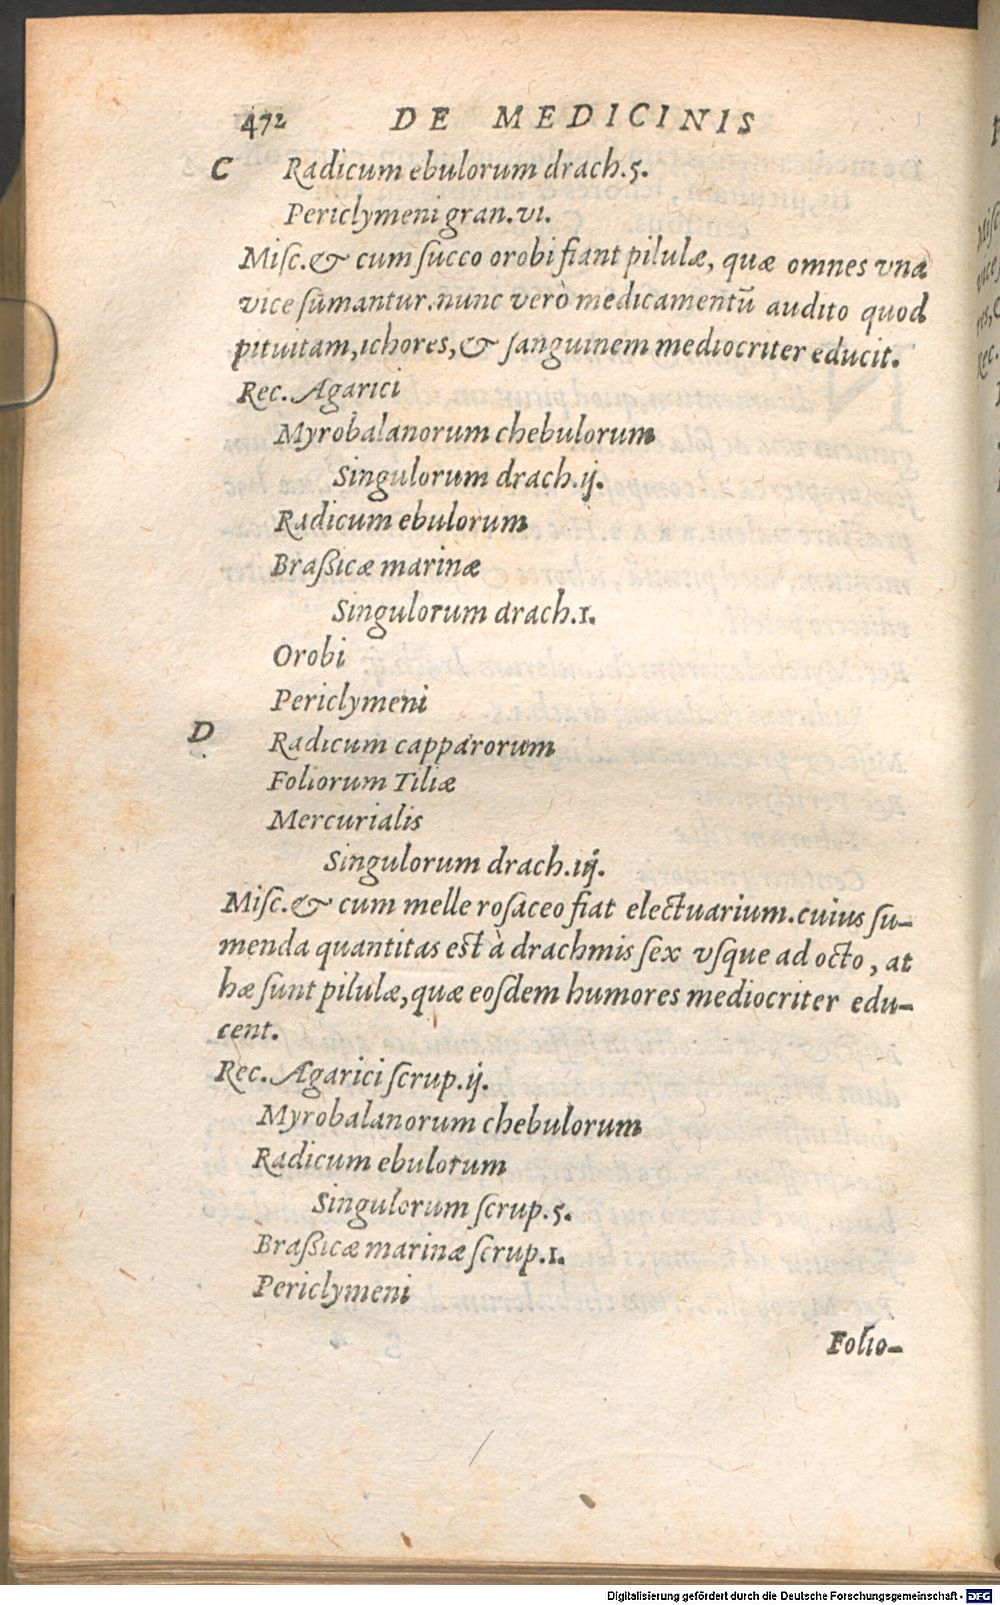 472 DE MEDICINIS
C Radicum ebulorum drach.5.
Periclymeni gran.vi.
Misc.& cum succo orobi fiant pilulæ, quæ omnes vna
vice sumantur.nunc verò medicamentū audito quod
pituitam,ichores,& sanguinem mediocriter educit.
Rec. Agarici
Myrobalanorum chebulorum
Singulorum drach.ij.
Radicum ebulorum
Braßicæ marinæ
Singulorum drach.1.
Orobi
Periclymeni
D Radicum capparorum
Foliorum Tiliæ
Mercurialis
Singulorum drach.iij.
Misc.& cum melle rosaceo fiat electuarium.cuius su-
menda quantitas est à drachmis sex vsque ad octo, at
hæ sunt pilulæ,quæ eosdem humores mediocriter edu-
cent.
Rec. Agarici scrup.ij.
Myrobalanorum chebulorum
Radicum ebulorum
Singulorum scrup.5.
Braßicæ marinæ scrup.1.
Periclymeni
Folio-
Digitalisierung gefördert durch die Deutsche Forschungsgemeinschaft - DFG